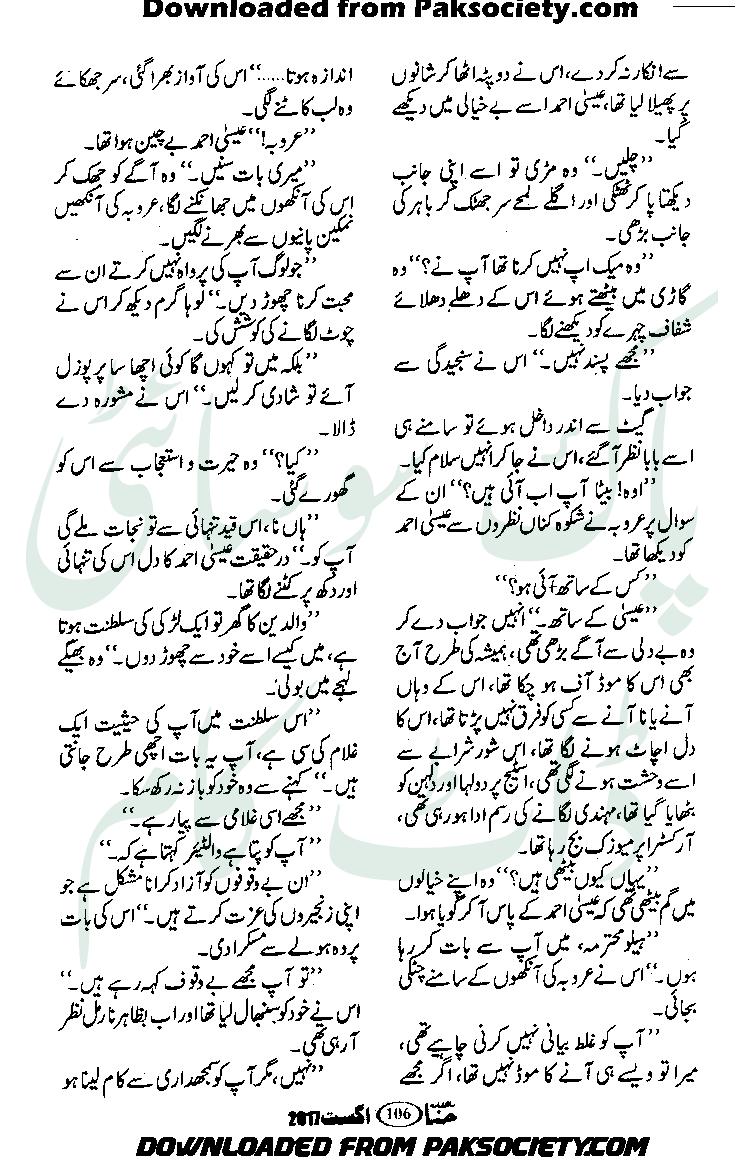 Downloaded from Paksociety.com
سے انکار نہ کر دے، اس نے دوپٹہ اٹھا کر شانوں
پر پھیلا لیا تھا، عیسیٰ احمد اسے بے خیالی میں دیکھے
گیا۔
”چلیں۔“ وہ مڑی تو اسے اپنی جانب
دیکھتا پا کر ٹھٹکی اور اگلے لمحے سر جھٹک کر باہر کی
جانب بڑھی۔
”وہ میک اپ نہیں کرنا تھا آپ نے؟“ وہ
گاڑی میں بیٹھتے ہوئے اس کے دھلے دھلائے
شفاف چہرے کو دیکھنے لگا۔
”مجھے پسند نہیں۔“ اس نے سنجیدگی سے
جواب دیا۔
گیٹ سے اندر داخل ہوئے تو سامنے ہی
اسے بابا نظر آ گئے، اس نے جا کر انہیں سلام کیا۔
”اوہ! بیٹا آپ اب آئی ہیں؟“ ان کے
سوال پر عروبہ نے شکوہ کناں نظروں سے عیسیٰ احمد
کو دیکھا تھا۔
”کس کے ساتھ آئی ہو؟“
”عیسیٰ کے ساتھ۔“ انہیں جواب دے کر
وہ بے دلی سے آگے بڑھی تھی، ہمیشہ کی طرح آج
بھی اس کا موڈ آف ہو چکا تھا، اس کے وہاں
آنے یا نا آنے سے کسی کو فرق نہیں پڑتا تھا، اس کا
دل اچاٹ ہونے لگا تھا، اس شور شرابے سے
اسے وحشت ہونے لگی تھی، اسٹیج پر دولہا اور دلہن کو
بٹھایا گیا تھا، مہندی لگانے کی رسم ادا ہو رہی تھی،
آرکسٹرا پر میوزک بج رہا تھا۔
”یہاں کیوں بیٹھی ہیں؟“ وہ اپنے خیالوں
میں گم بیٹھی تھی کہ عیسیٰ احمد کے پاس آ کر گویا ہوا۔
”ہیلو محترمہ، میں آپ سے بات کر رہا
ہوں۔“ اس نے عروبہ کی آنکھوں کے سامنے چٹکی
بجائی۔
”آپ کو غلط بیانی نہیں کرنی چاہیے تھی،
میرا تو ویسے ہی آنے کا موڈ نہیں تھا، اگر مجھے
اندازہ ہوتا.....“ اس کی آواز بھرا گئی، سر جھکائے
وہ لب کاٹنے لگی۔
”عروبہ!“ عیسیٰ احمد بے چین ہوا تھا۔
”میری بات سنیں۔“ وہ آگے کو جھک کر
اس کی آنکھوں میں جھانکنے لگا، عروبہ کی آنکھیں
نمکین پانیوں سے بھرنے لگیں۔
”جو لوگ آپ کی پرواہ نہیں کرتے ان سے
محبت کرنا چھوڑ دیں۔“ لوہا گرم دیکھ کر اس نے
چوٹ لگانے کی کوشش کی۔
”بلکہ میں تو کہوں گا کوئی اچھا سا پرپوزل
آئے تو شادی کر لیں۔“ اس نے مشورہ دے
ڈالا۔
”کیا؟“ وہ حیرت و استعجاب سے اس کو
گھورے گئی۔
”ہاں نا، اس قید تنہائی سے تو نجات ملے گی
آپ کو۔“ در حقیقت عیسیٰ احمد کا دل اس کی تنہائی
اور دکھ پر کٹنے لگا تھا۔
”والدین کا گھر تو ایک لڑکی کی سلطنت ہوتا
ہے، میں کیسے اسے خود سے چھوڑ دوں۔“ وہ بھیگے
لہجے میں بولی۔
”اس سلطنت میں آپ کی حیثیت ایک
غلام کی سی ہے، آپ یہ بات اچھی طرح جانتی
ہیں۔“ کہنے سے وہ خود کو باز نہ رکھ سکا۔
”مجھے اسی غلامی سے پیار ہے۔“
”آپ کو پتا ہے والٹیئر کہتا ہے کہ۔“
”ان بے وقوفوں کو آزاد کرانا مشکل ہے جو
اپنی زنجیروں کی عزت کرتے ہیں۔“ اس کی بات
پر وہ ہولے سے مسکرا دی۔
”تو آپ مجھے بے وقوف کہہ رہے ہیں۔“
اس نے خود کو سنبھال لیا تھا اور اب بظاہر نارمل نظر
آ رہی تھی۔
”نہیں، مگر آپ کو سمجھداری سے کام لینا ہو
حنا 106 اگست 2017
DOWNLOADED FROM PAKSOCIETY.COM
پاک سوسائٹی
ڈاٹ کام